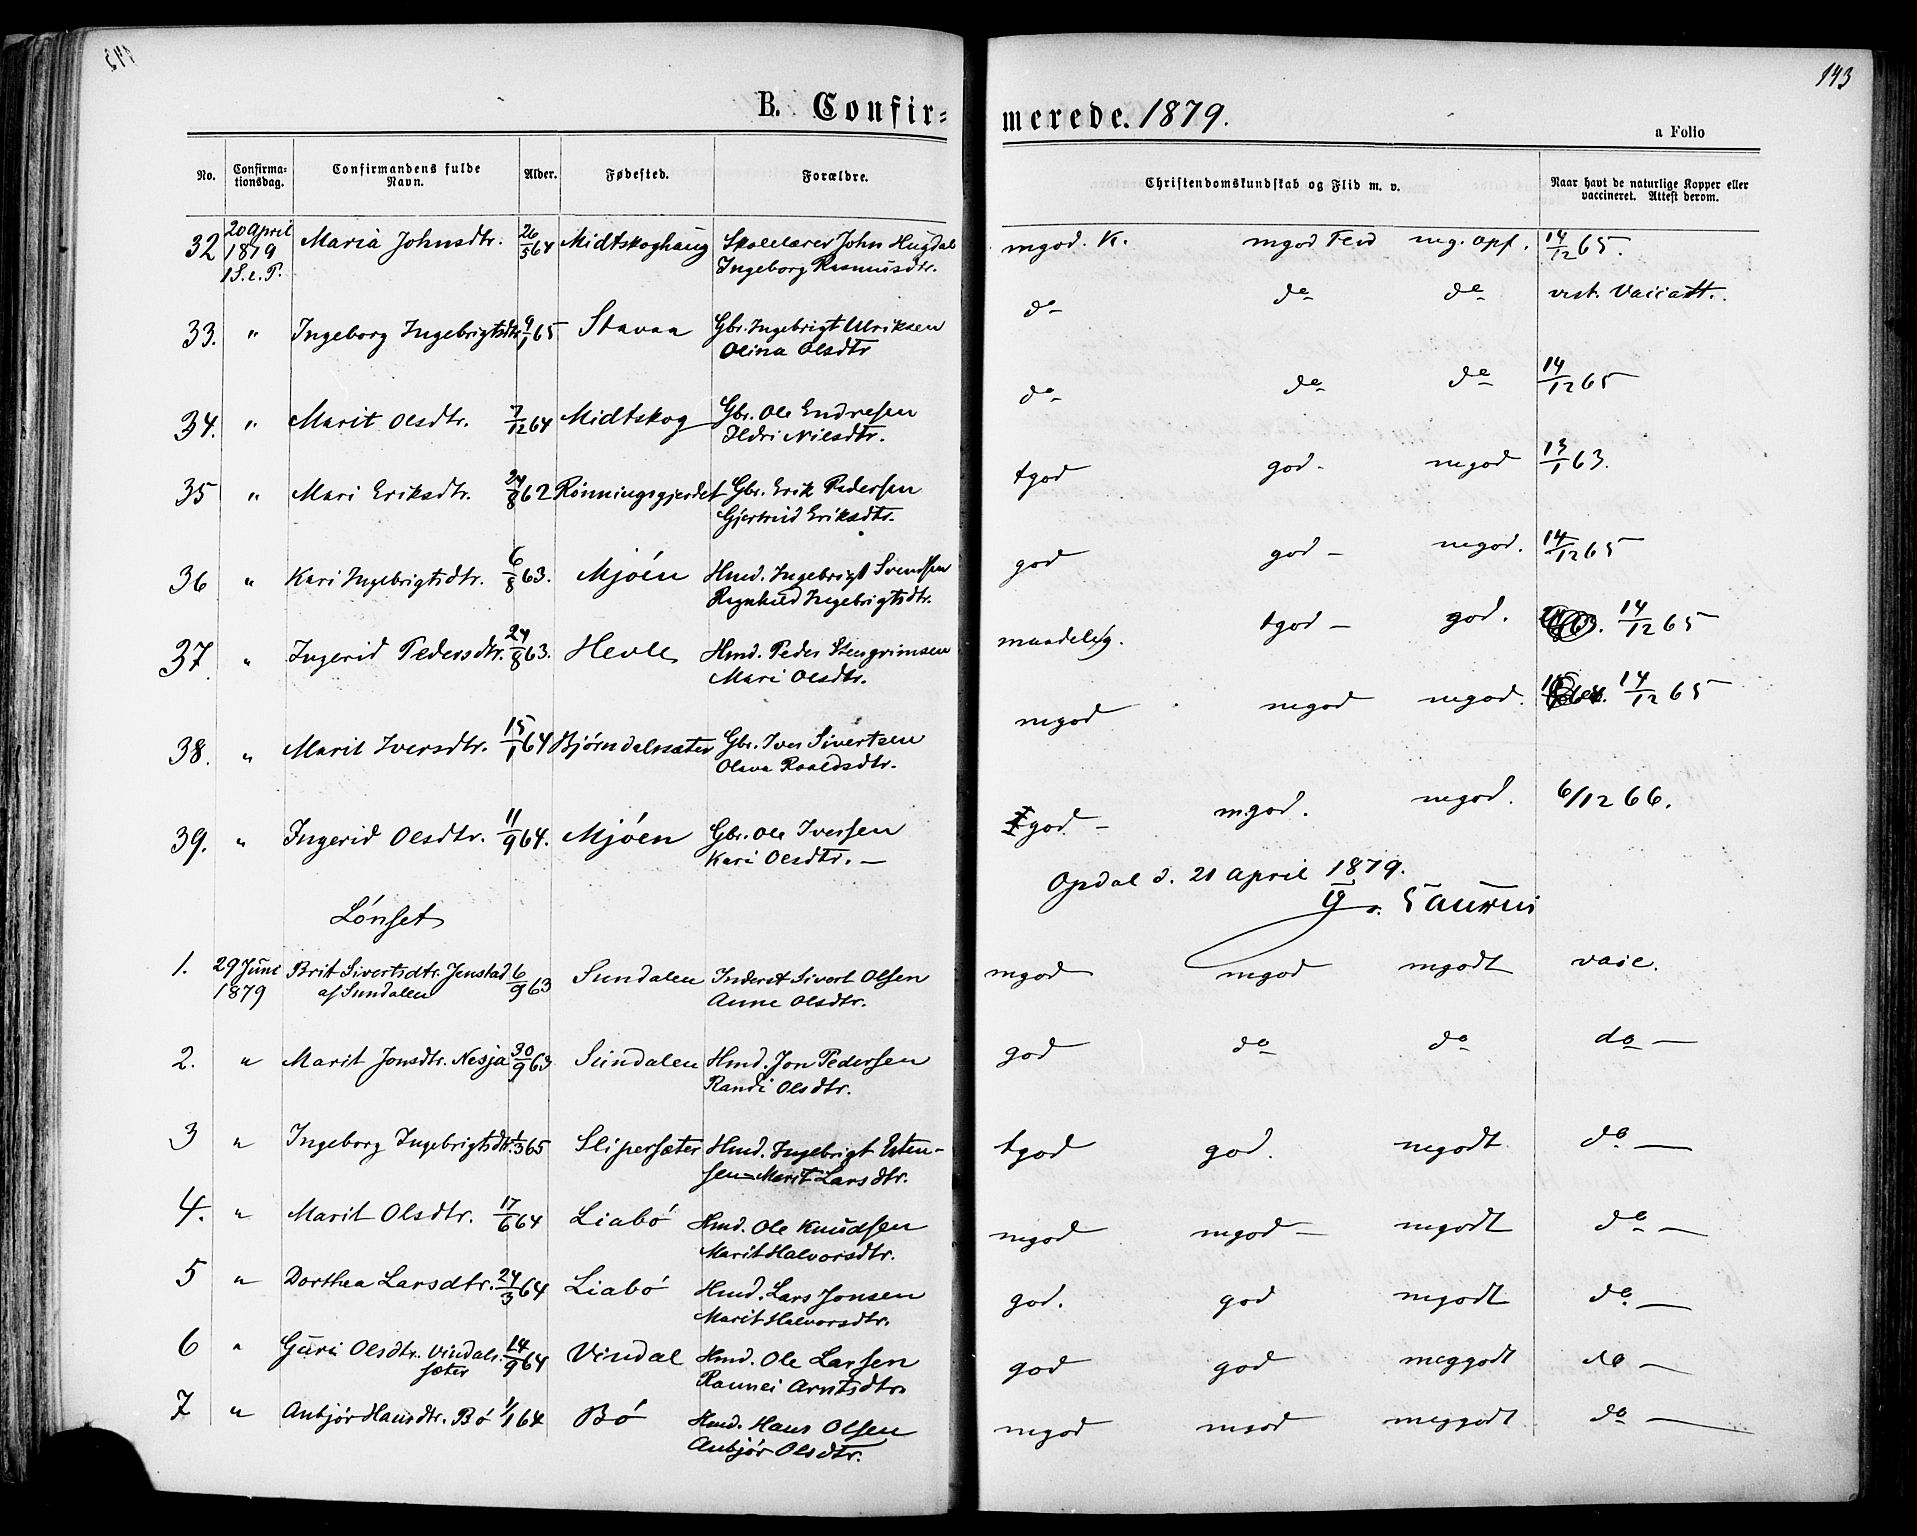 143
B. Confir=
merede. 1879.
a Folio
No. Confirma-tionsdag. Confirmandens fulde Navn. Alder. Fødested. Forældre. Christendomskundskab og Flid m. v. Naar havt de naturlige Kopper eller vaccineret. Attest derom.
32 20 April 1879 1 S. e. P. Maria Johnsdtr. 26/5 64 Midtskoghaug Skolelærer John Hugdal mgod. K. mgod Flid mg. Opf. 14/12 65.
Ingeborg Rasmusdtr.
33. " Ingeborg Ingebrigtsdtr 9/1 65 Stavaa Gbr. Ingebrigt Ulriksen do do do vist. Vaccatt.
Olina Olsdtr
34. " Marit Olsdtr. 7/12 64 Midtskog Gbr. Ole Endresen do do do 14/12 65
Ildri Nilsdtr.
35 " Mari Eriksdtr. 24/8 62 Rönningsgjerdet Gbr. Erik Pedersen tgod god mgod 13/1 63.
Gjertrud Eriksdtr.
36 " Kari Ingebrigtsdtr. 6/8 63. Mjöen Hmd. Ingebrigt Svendsen god god – mgod. 14/12 65
Ragnhild Ingebrigtsdtr.
37. " Ingerid Pedersdtr. 24/8 63. Hevle Hmd. Peder Stengrimsen maadelig. tgod – god. 14/12 65
Mari Olsdtr.
38. " Marit Iversdtr. 15/1 64 Bjørndalssæter Gbr. Iver Sivertsen mgod mgod mgod. 14/12 65
Olava Roaldsdtr.
39. " Ingerid Olsdtr. 11/9 64. Mjöen Gbr. Ole Iversen tgod – mgod. mgod. 6/12 66.
Kari Olsdtr. –
Opdal d. 21 April 1879.
Lönset
1. 29 Juni 1879 Brit Sivertsdtr. Jenstad af Sundalen 6/9 63 Sundalen Inderst Sivert Olsen mgod mgod mgodt vacc.
Anne Olsdtr.
2. " Marit Jonsdtr. Nesja 30/9 63 Sundalen Hmd. Jon Pedersen god do do do –
Randi Olsdtr.
3 " Ingeborg Ingebrigtsdtr. 1/3 65 Slipersæter Hmd. Ingebrigt Esten- tgod god. mgodt do –
sen – Marit Larsdtr.
4. " Marit Olsdtr. 17/6 64 Liabö Hmd. Ole Knudsen mgod mgod – mgodt do –
Marit Halvorsdtr.
5 " Dorthea Larsdtr. 24/3 64 Liabö Hmd. Lars Jonsen god. god mgodt do. –
Marit Halvorsdtr.
6 " Guri Olsdtr. Vindals-sæter 14/9 64 Vindal Hmd. Ole Larsen god god meggodt do –
Rannei Arntsdtr
7 " Anbjör Hansdtr. Bö 1/1 64 Bö Hmd. Hans Olsen mgod mgod meggodt do –
Anbjör Olsdtr.